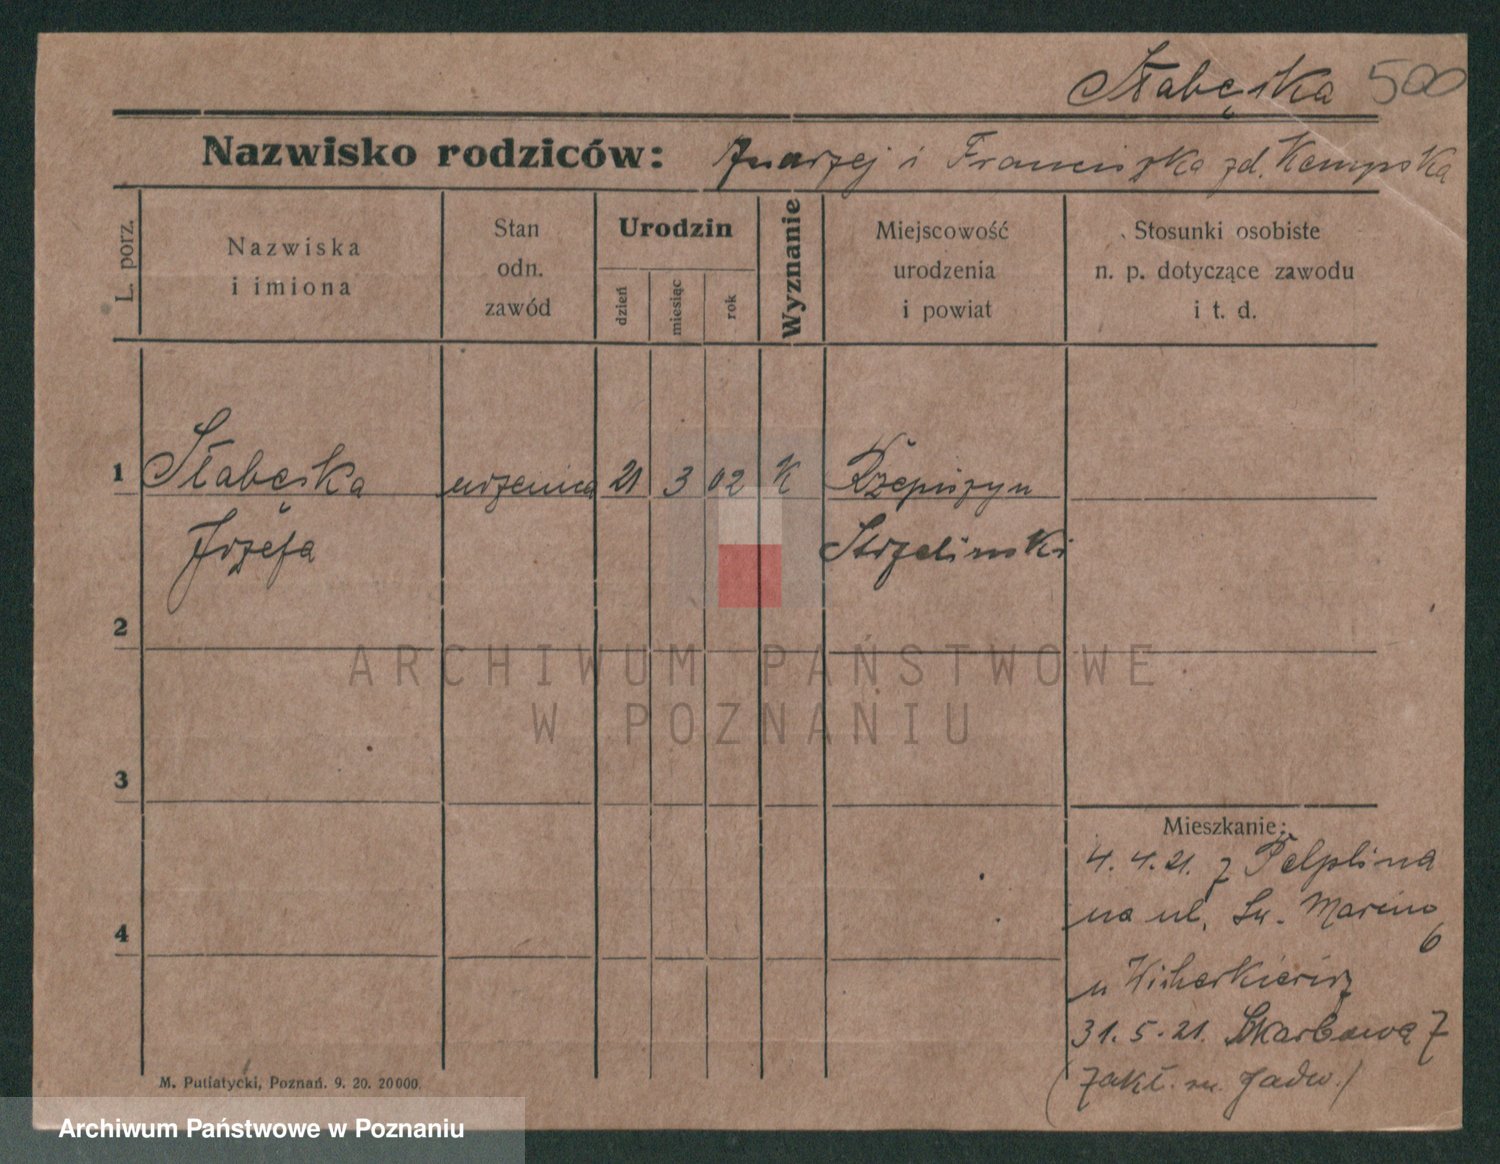 Słabęska 500
Nazwisko rodziców: Andrzej i Franciszka zd. Kempska
L. porz.
Nazwiska i imiona
Stan odn. zawód
Urodzin
dzień
miesiąc
rok
Wyznanie
Miejscowość urodzenia i powiat
Stosunki osobiste n. p. dotyczące zawodu i t. d.
1 Słabęska uczenica 21 3 02 K Rzepiszyn
Józefa Strzeliński
2
ARCHIWUM PAŃSTWOWE
W POZNANIU
3
Mieszkanie:
4. 4. 21. z Pelplina
na ul. Św. Marcina
6
u
31. 5. 21. Skarbowa 7
(Zakł. św. Jadw.)
4
M. Putiatycki, Poznań. 9. 20. 20000.
Archiwum Państwowe w Poznaniu